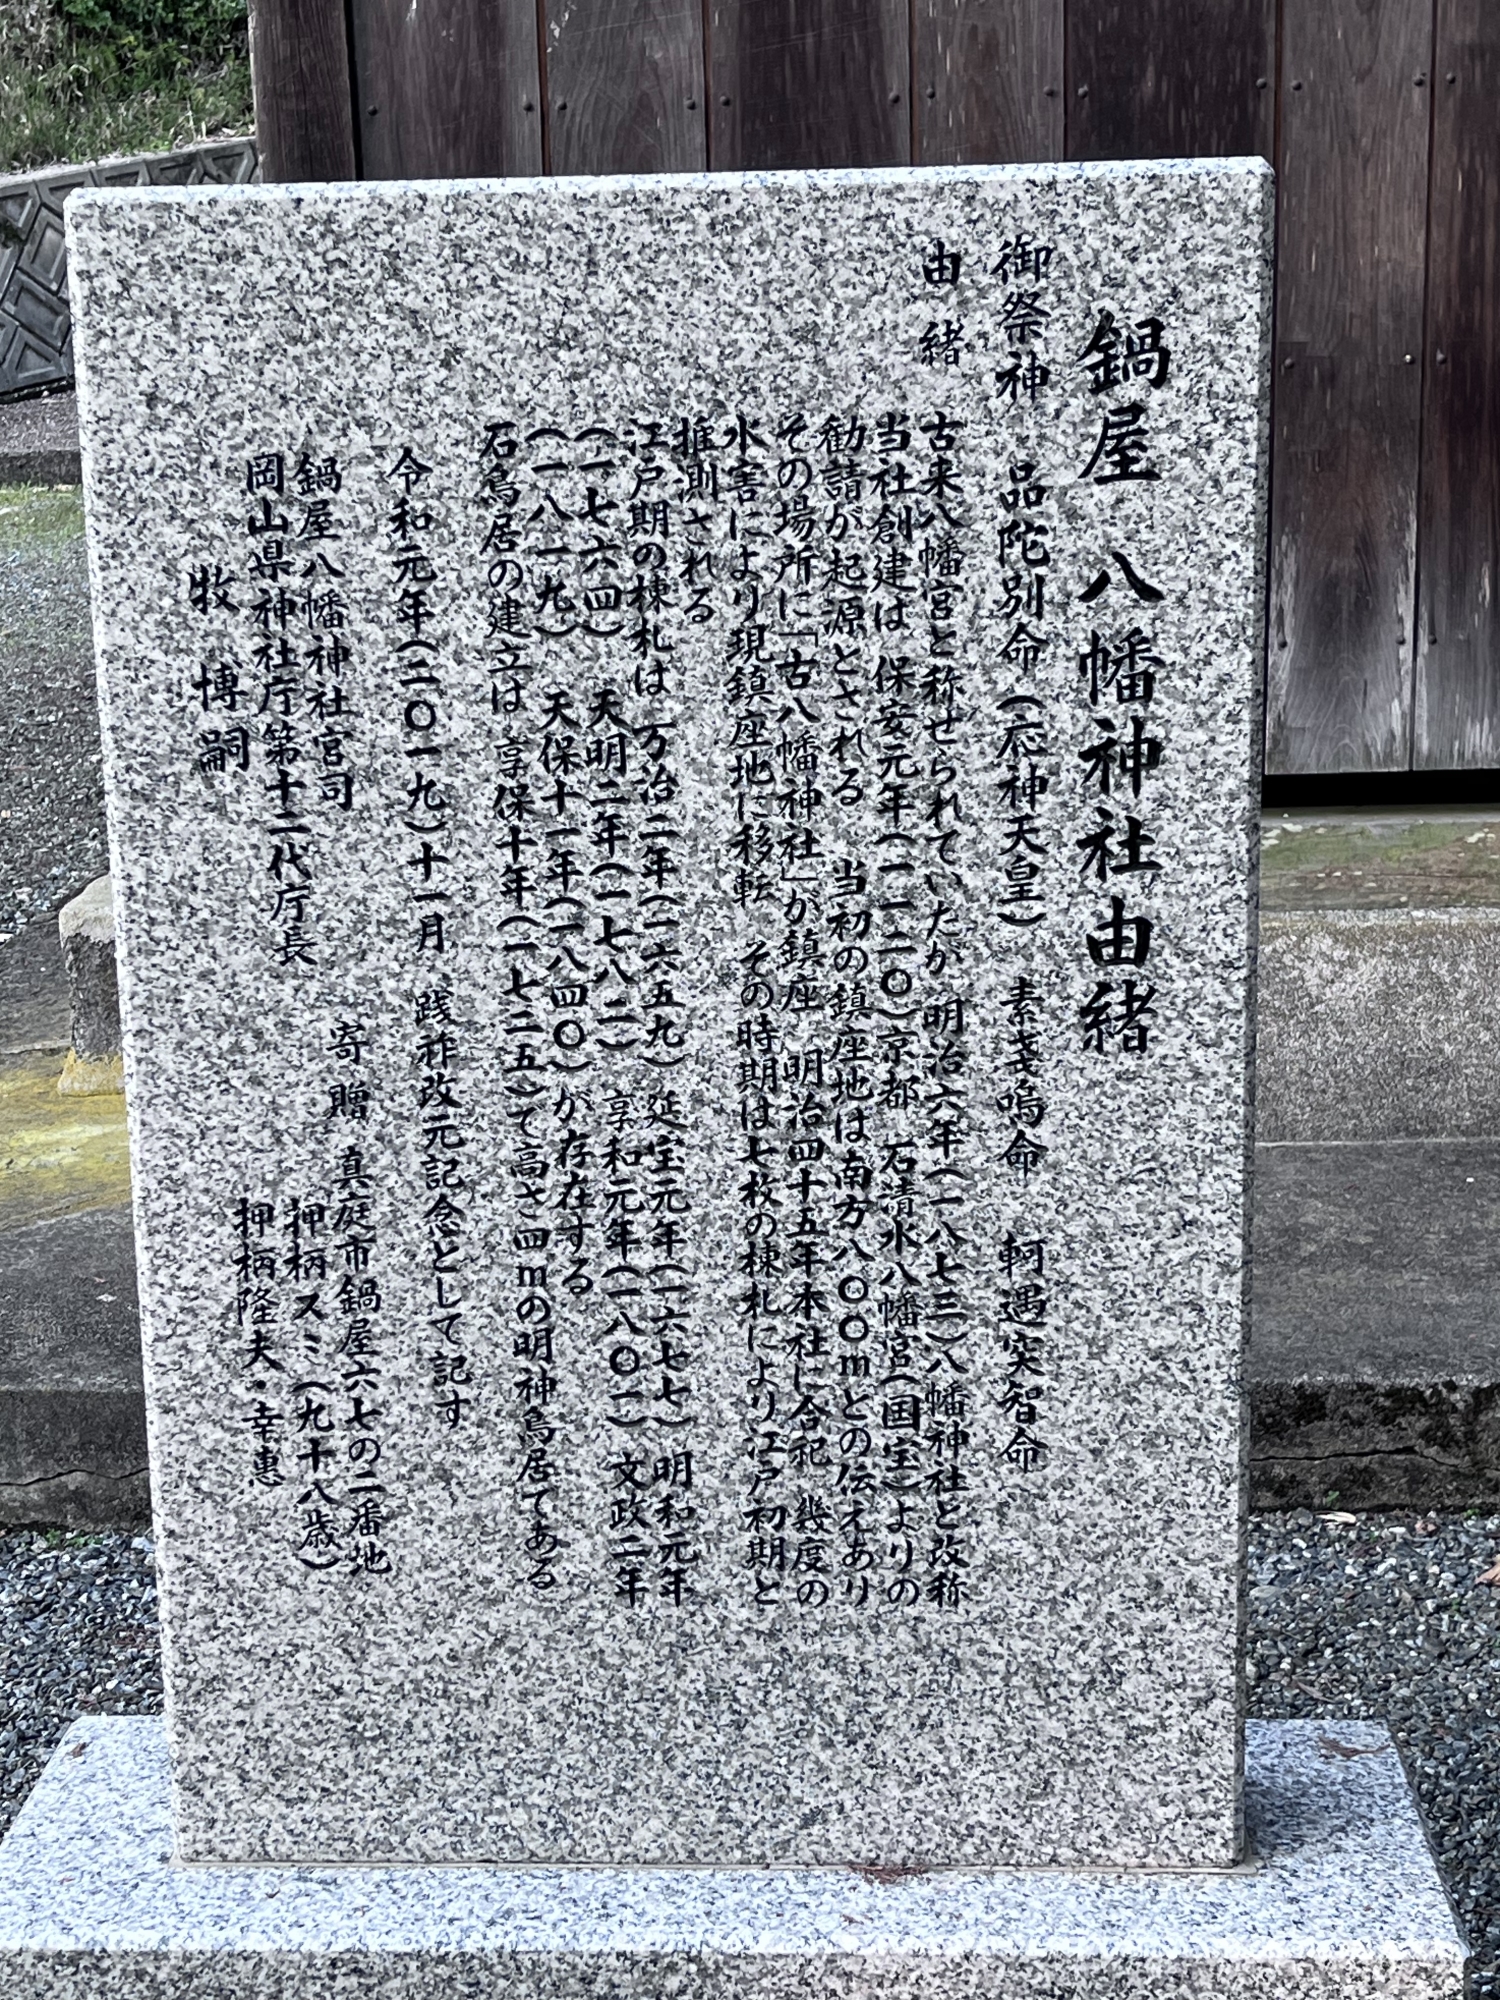 鍋屋八幡神社由緒
御祭神 品陀別命(応神天皇) 素戔嗚命 軻遇突智命
由緒
古来八幡宮と称せられていたが 明治六年(一八七三)八幡神社と改称
当社創建は 保安元年(一一二〇)京都 石清水八幡宮(国宝)よりの
勧請が起源とされる 当初の鎮座地は南方八〇〇mとの伝えあり
その場所に「古八幡神社」が鎮座 明治四十五年本社に合祀 幾度の
水害により現鎮座地に移転 その時期は七枚の棟札により江戸初期と
推測される
江戸期の棟札は 万治二年(一六五九) 延宝元年(一六七七) 明和元年
(一七六四) 天明二年(一七八二) 享和元年(一八〇一) 文政二年
(一八一九) 天保十一年(一八四〇)が存在する
石鳥居の建立は 享保十年(一七二五)で高さ四mの明神鳥居である
令和元年(二〇一九)十一月 践祚改元記念として記す
鍋屋八幡神社宮司
岡山県神社庁第十二代庁長
牧 博嗣
寄贈 真庭市鍋屋六七の二番地
押柄スミ(九十八歳)
押柄隆夫・幸恵